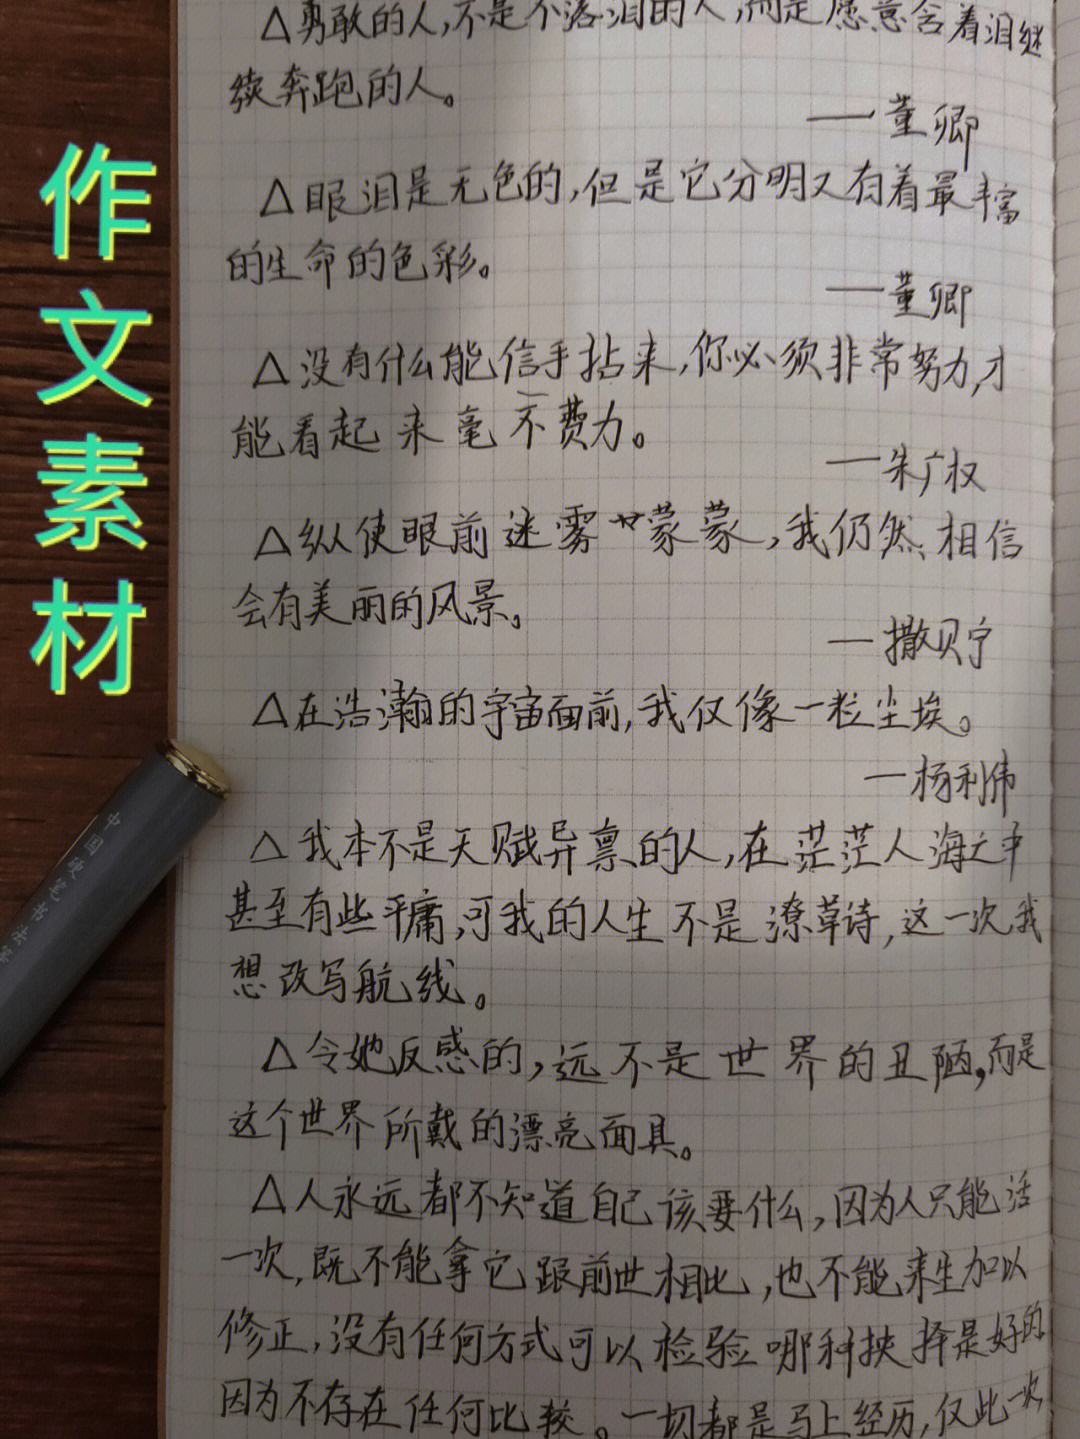 作文素材
△勇敢的人,不是不落泪的人,而是愿意含着泪继
续奔跑的人。
——董卿
△眼泪是无色的,但是它分明又有着最丰富
的生命的色彩。
——董卿
△没有什么能信手拈来,你必须非常努力,才
能看起来毫不费力。
——朱广权
△纵使眼前迷雾蒙蒙,我仍然相信
会有美丽的风景。
—撒贝宁
△在浩瀚的宇宙面前,我仅像一粒尘埃。
—杨利伟
△我本不是天赋异禀的人,在茫茫人海之中
甚至有些平庸,可我的人生不是潦草诗,这一次我
想改写航线。
△令她反感的,远不是世界的丑陋,而是
这个世界所戴的漂亮面具。
△人永远都不知道自己该要什么,因为人只能活
一次,既不能拿它跟前世相比,也不能来生加以
修正,没有任何方式可以检验哪种抉择是好的
因为不存在任何比较。一切都是马上经历,仅此一次
中国硬笔书法